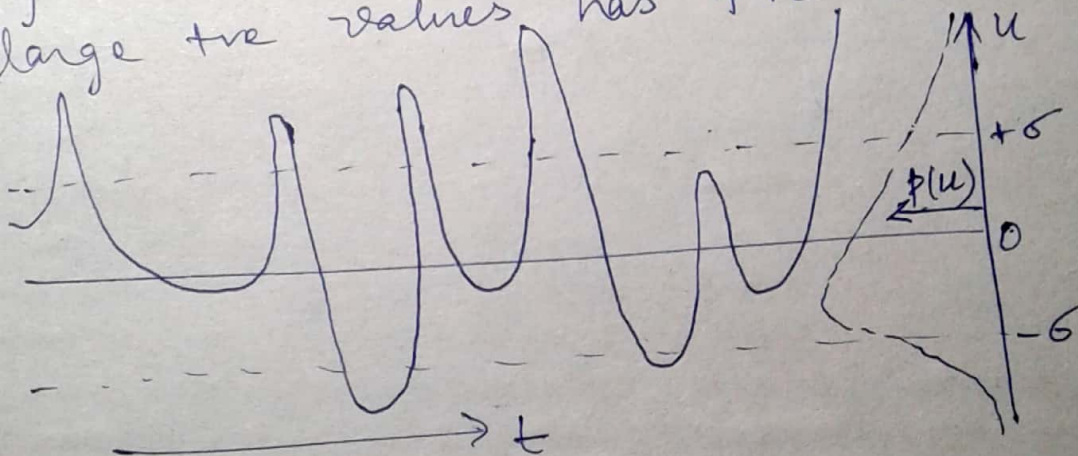 large +ve values has
u
+σ
p(u)
0
-σ
t